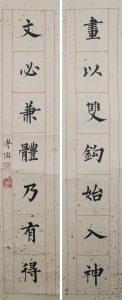 畫以雙鈎始入神
文必兼體乃有得